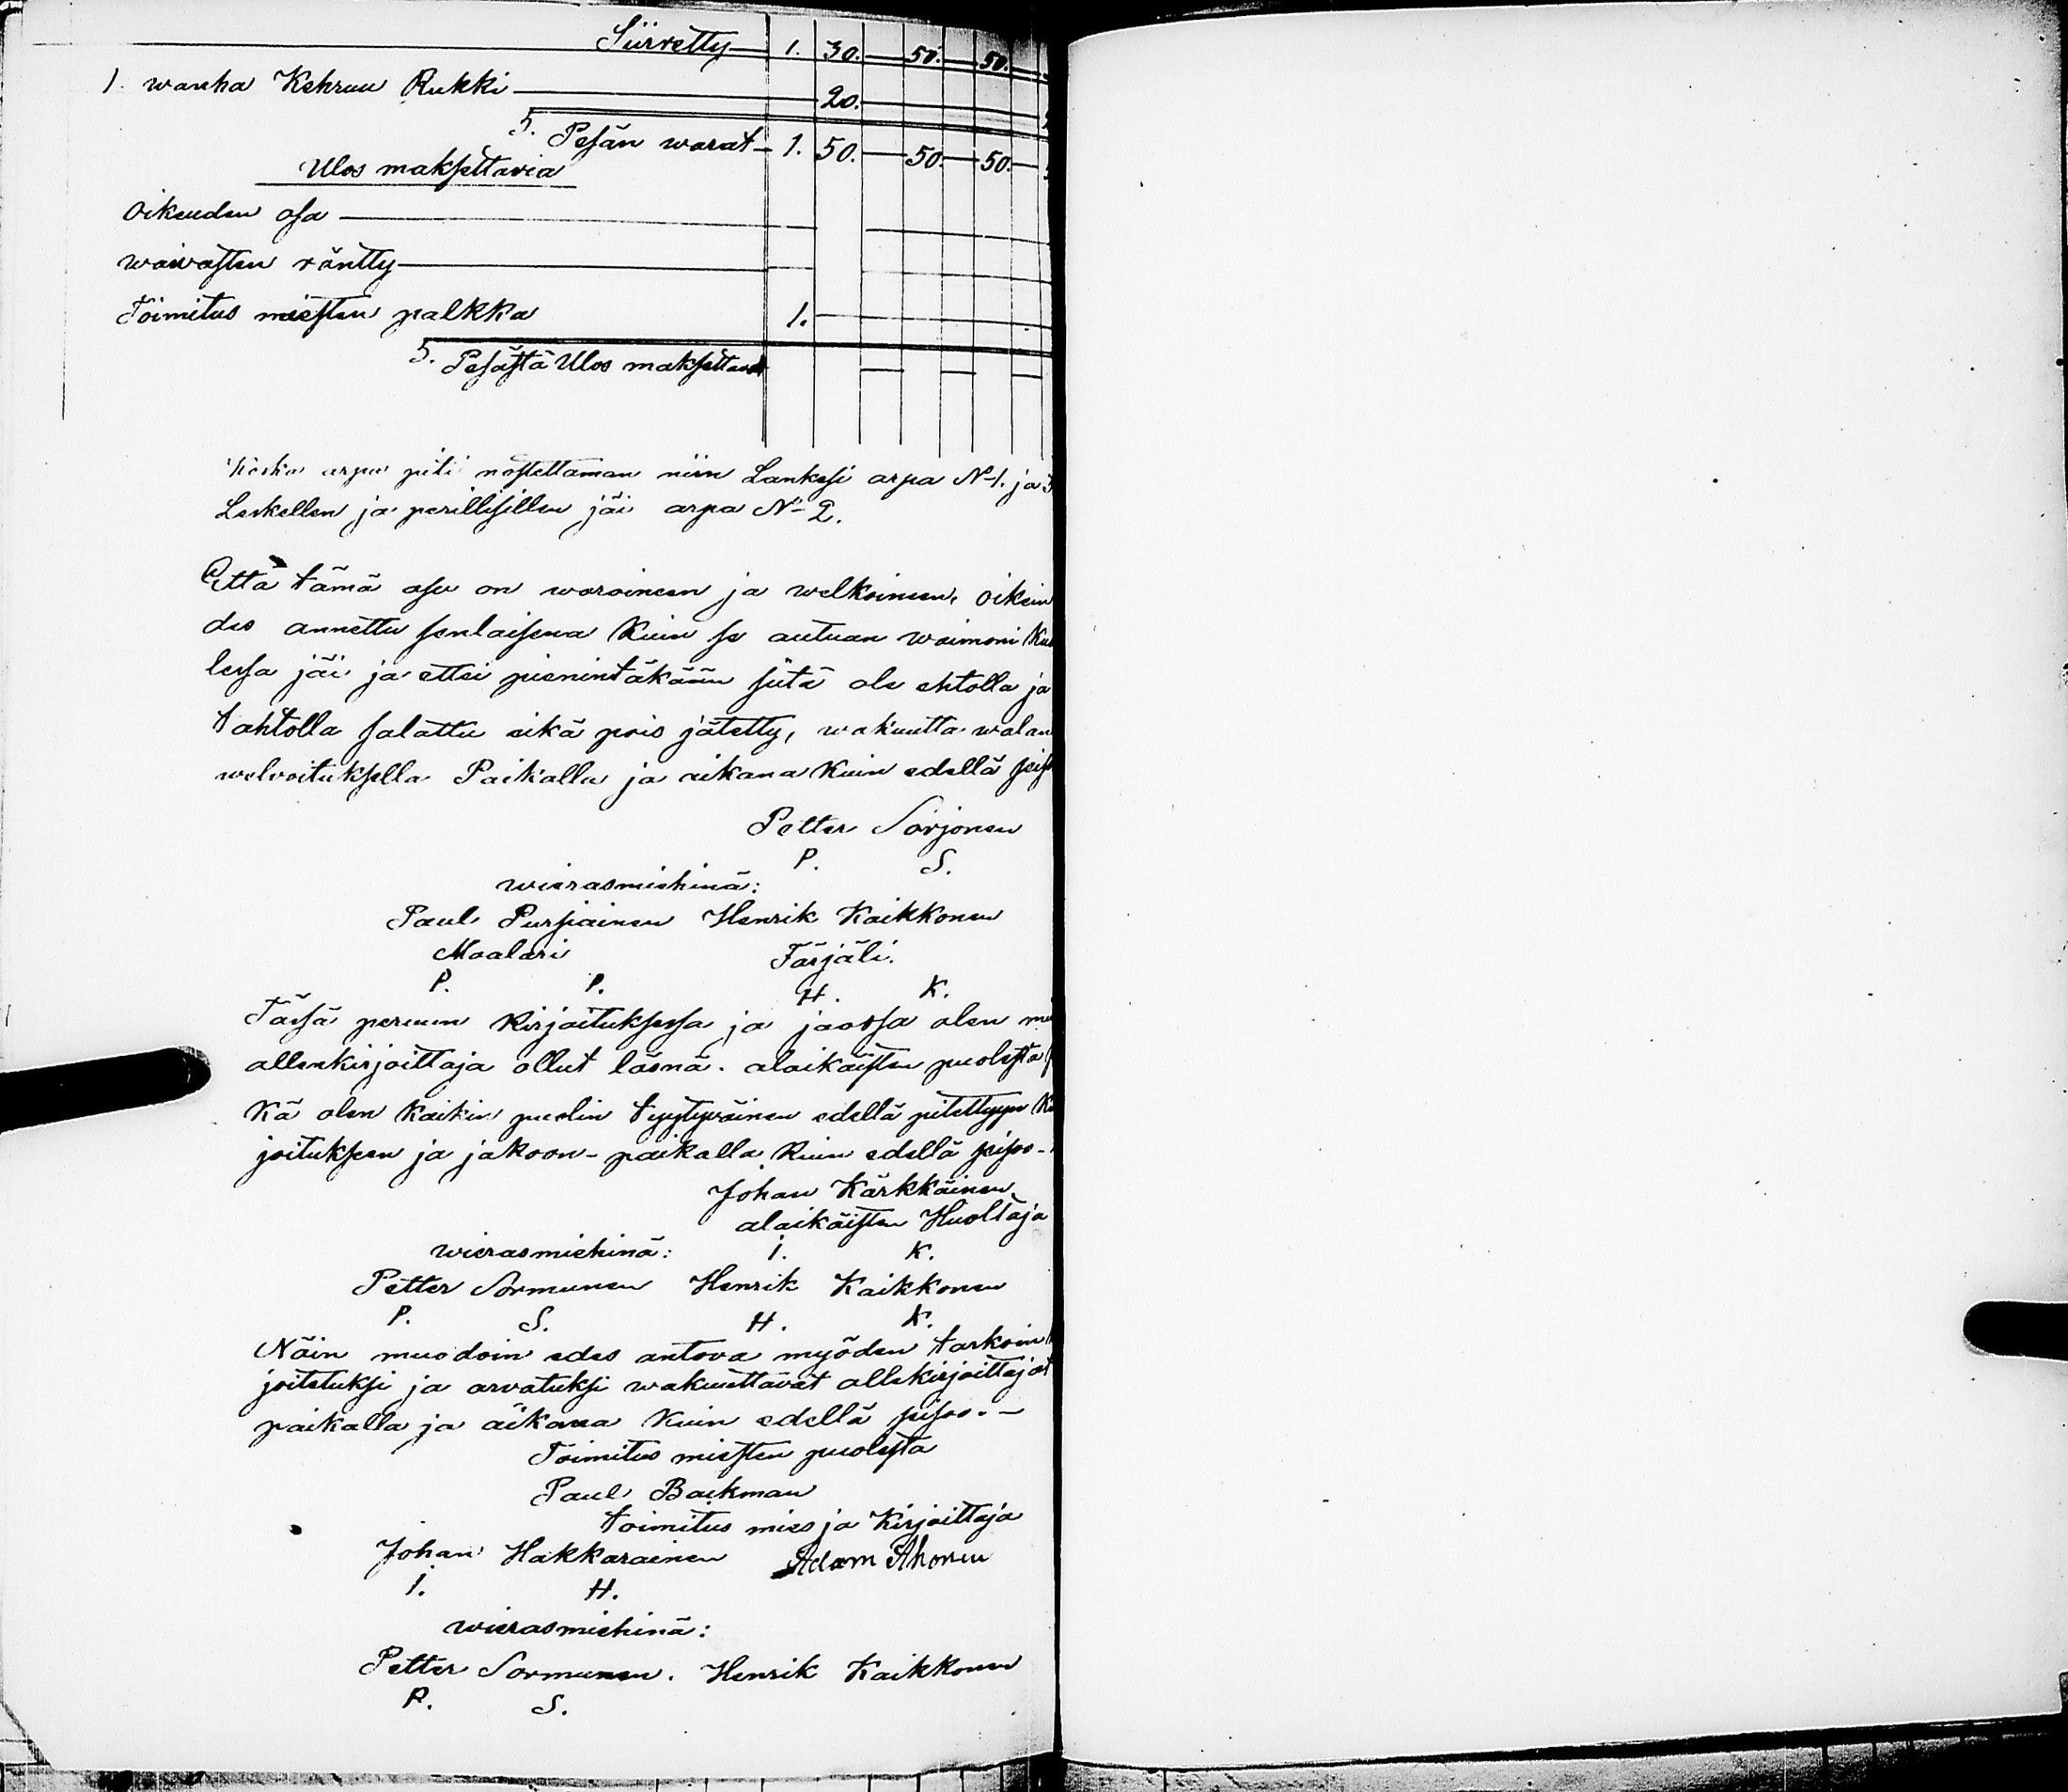 Siirretty 1. 30. 50. 50.
1. wanha Kehruu Rukki 20.
5. Pesän warat 1. 50. 50. 50.
Ulos maksettavia
Oikeuden osa
waivasten räntty
Toimitus miesten palkka 1.
5. Pesästä Ulos maksettava
Koska arpa piti nostettaman niin Lankesi arpa N-1. ja 3
Leskellen ja perillisillen jäi arpa N-2.
Että tämä osa on waroineen ja welkoineen, oikein
des annettu senlaisena Kuin se autuan waimoni
lessa jäi ja ettei pienintäkään siitä ole ehtolla ja
tahtolla salattu eikä pois jätetty, wakuutta walan
welvoituksella Paikalla ja aikana Kuin edellä
Petter Sorjonen
P. S.
wierasmiehinä:
Paul Pursiainen Henrik Kaikkonen
Maalari Färjäli.
P. P. H. K.
Tässä perunn Kirjoituksessa ja jaossa olen
allenkirjoittaja ollut läsnä. alaikäisten puolesta
Kä olen Kaikin puolin tyytyväinen edellä pitettyyn
joitukseen ja jakoon - paikalla Kuin edellä seisoo -
Johan Kärkkäinen
alaikäisten Huoltaja
wierasmiehinä: i. K.
Petter Sormunen Henrik Kaikkonen
P. S. H. K.
Näin muodoin edes antova myöden tarkoin
joitetuksi ja arvatuksi wakuuttavat allekirjoittajat
paikalla ja aikana Kuin edellä seisoo. -
Toimitus miesten puolesta
Paul Backman
toimitus mies ja Kirjoittaja
Johan Hakkarainen Adam Ahonen
i. H.
wierasmiehinä:
Petter Sormunen. Henrik Kaikkonen
P. S.